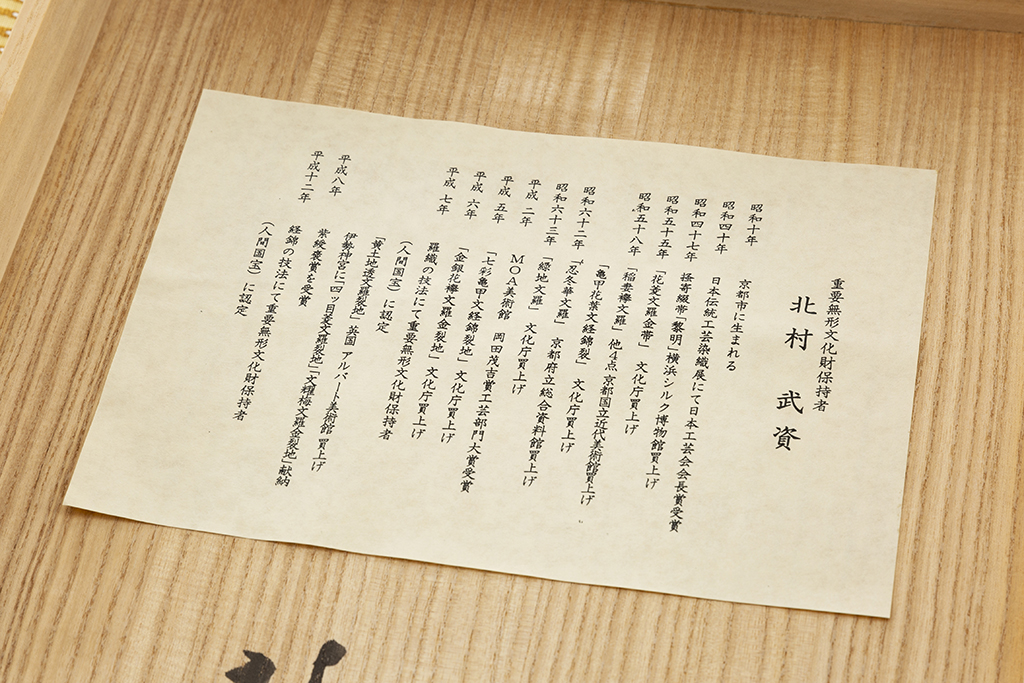 重要無形文化財保持者
北村 武資
昭和十年 京都市に生まれる
昭和四十年 日本伝統工芸染織展にて日本工芸会会長賞受賞
昭和四十七年 掻寄綴帯「黎明」横浜シルク博物館買上げ
昭和五十五年 「花菱文羅金帯」 文化庁買上げ
昭和五十八年 「稲妻襷文羅」他4点 京都国立近代美術館買上げ
「亀甲花葉文経錦裂」 文化庁買上げ
昭和六十二年 「忍冬華文羅」 京都府立総合資料館買上げ
昭和六十三年 「緑地文羅」 文化庁買上げ
平成 二年 MOA美術館 岡田茂吉賞工芸部門大賞受賞
平成 五年 「七彩亀甲文経錦裂地」文化庁買上げ
平成 六年 「金銀花襷文羅金裂地」文化庁買上げ
平成 七年 羅織の技法にて重要無形文化財保持者
(人間国宝)に認定
「黄土地透文羅裂地」英国 アルバート美術館 買上げ
平成八年 伊勢神宮に「四ッ目菱文羅裂地」「文襷梅文羅金裂地」献納
紫綬褒賞を受賞
平成十二年 経錦の技法にて重要無形文化財保持者
(人間国宝)に認定